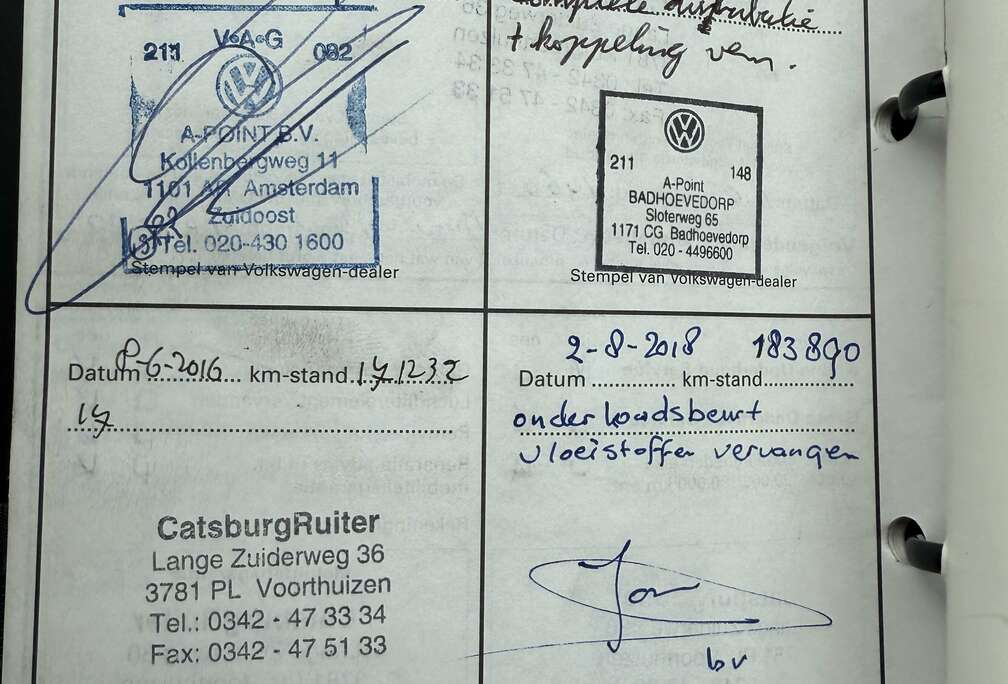 complete distributie
+ koppeling verv.
211 V•A•G 082
A-POINT B.V.
Kollenbergweg 11
1101 AR Amsterdam
Zuidoost
Tel. 020-430 1600
Stempel van Volkswagen-dealer
211 148
A-Point
BADHOEVEDORP
Sloterweg 65
1171 CG Badhoevedorp
Tel. 020 - 4496600
Stempel van Volkswagen-dealer
Datum 8-6-2016 km-stand 171232
CatsburgRuiter
Lange Zuiderweg 36
3781 PL Voorthuizen
Tel.: 0342 - 47 33 34
Fax: 0342 - 47 51 33
2-8-2018 183890
Datum km-stand
onderhoudsbeurt
vloeistoffen vervangen